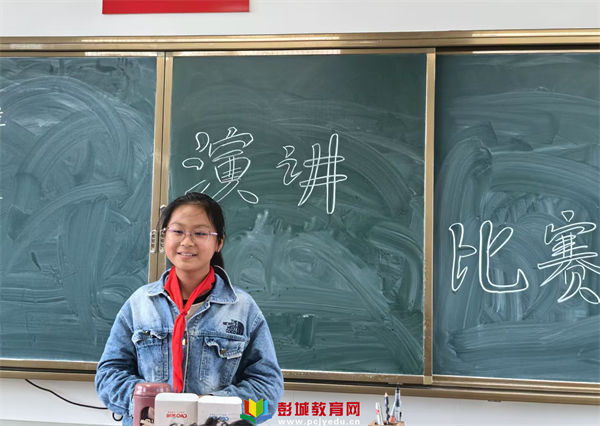 演讲
比赛
THE NORTH FACE
彭城教育网
www.pcjyedu.cn